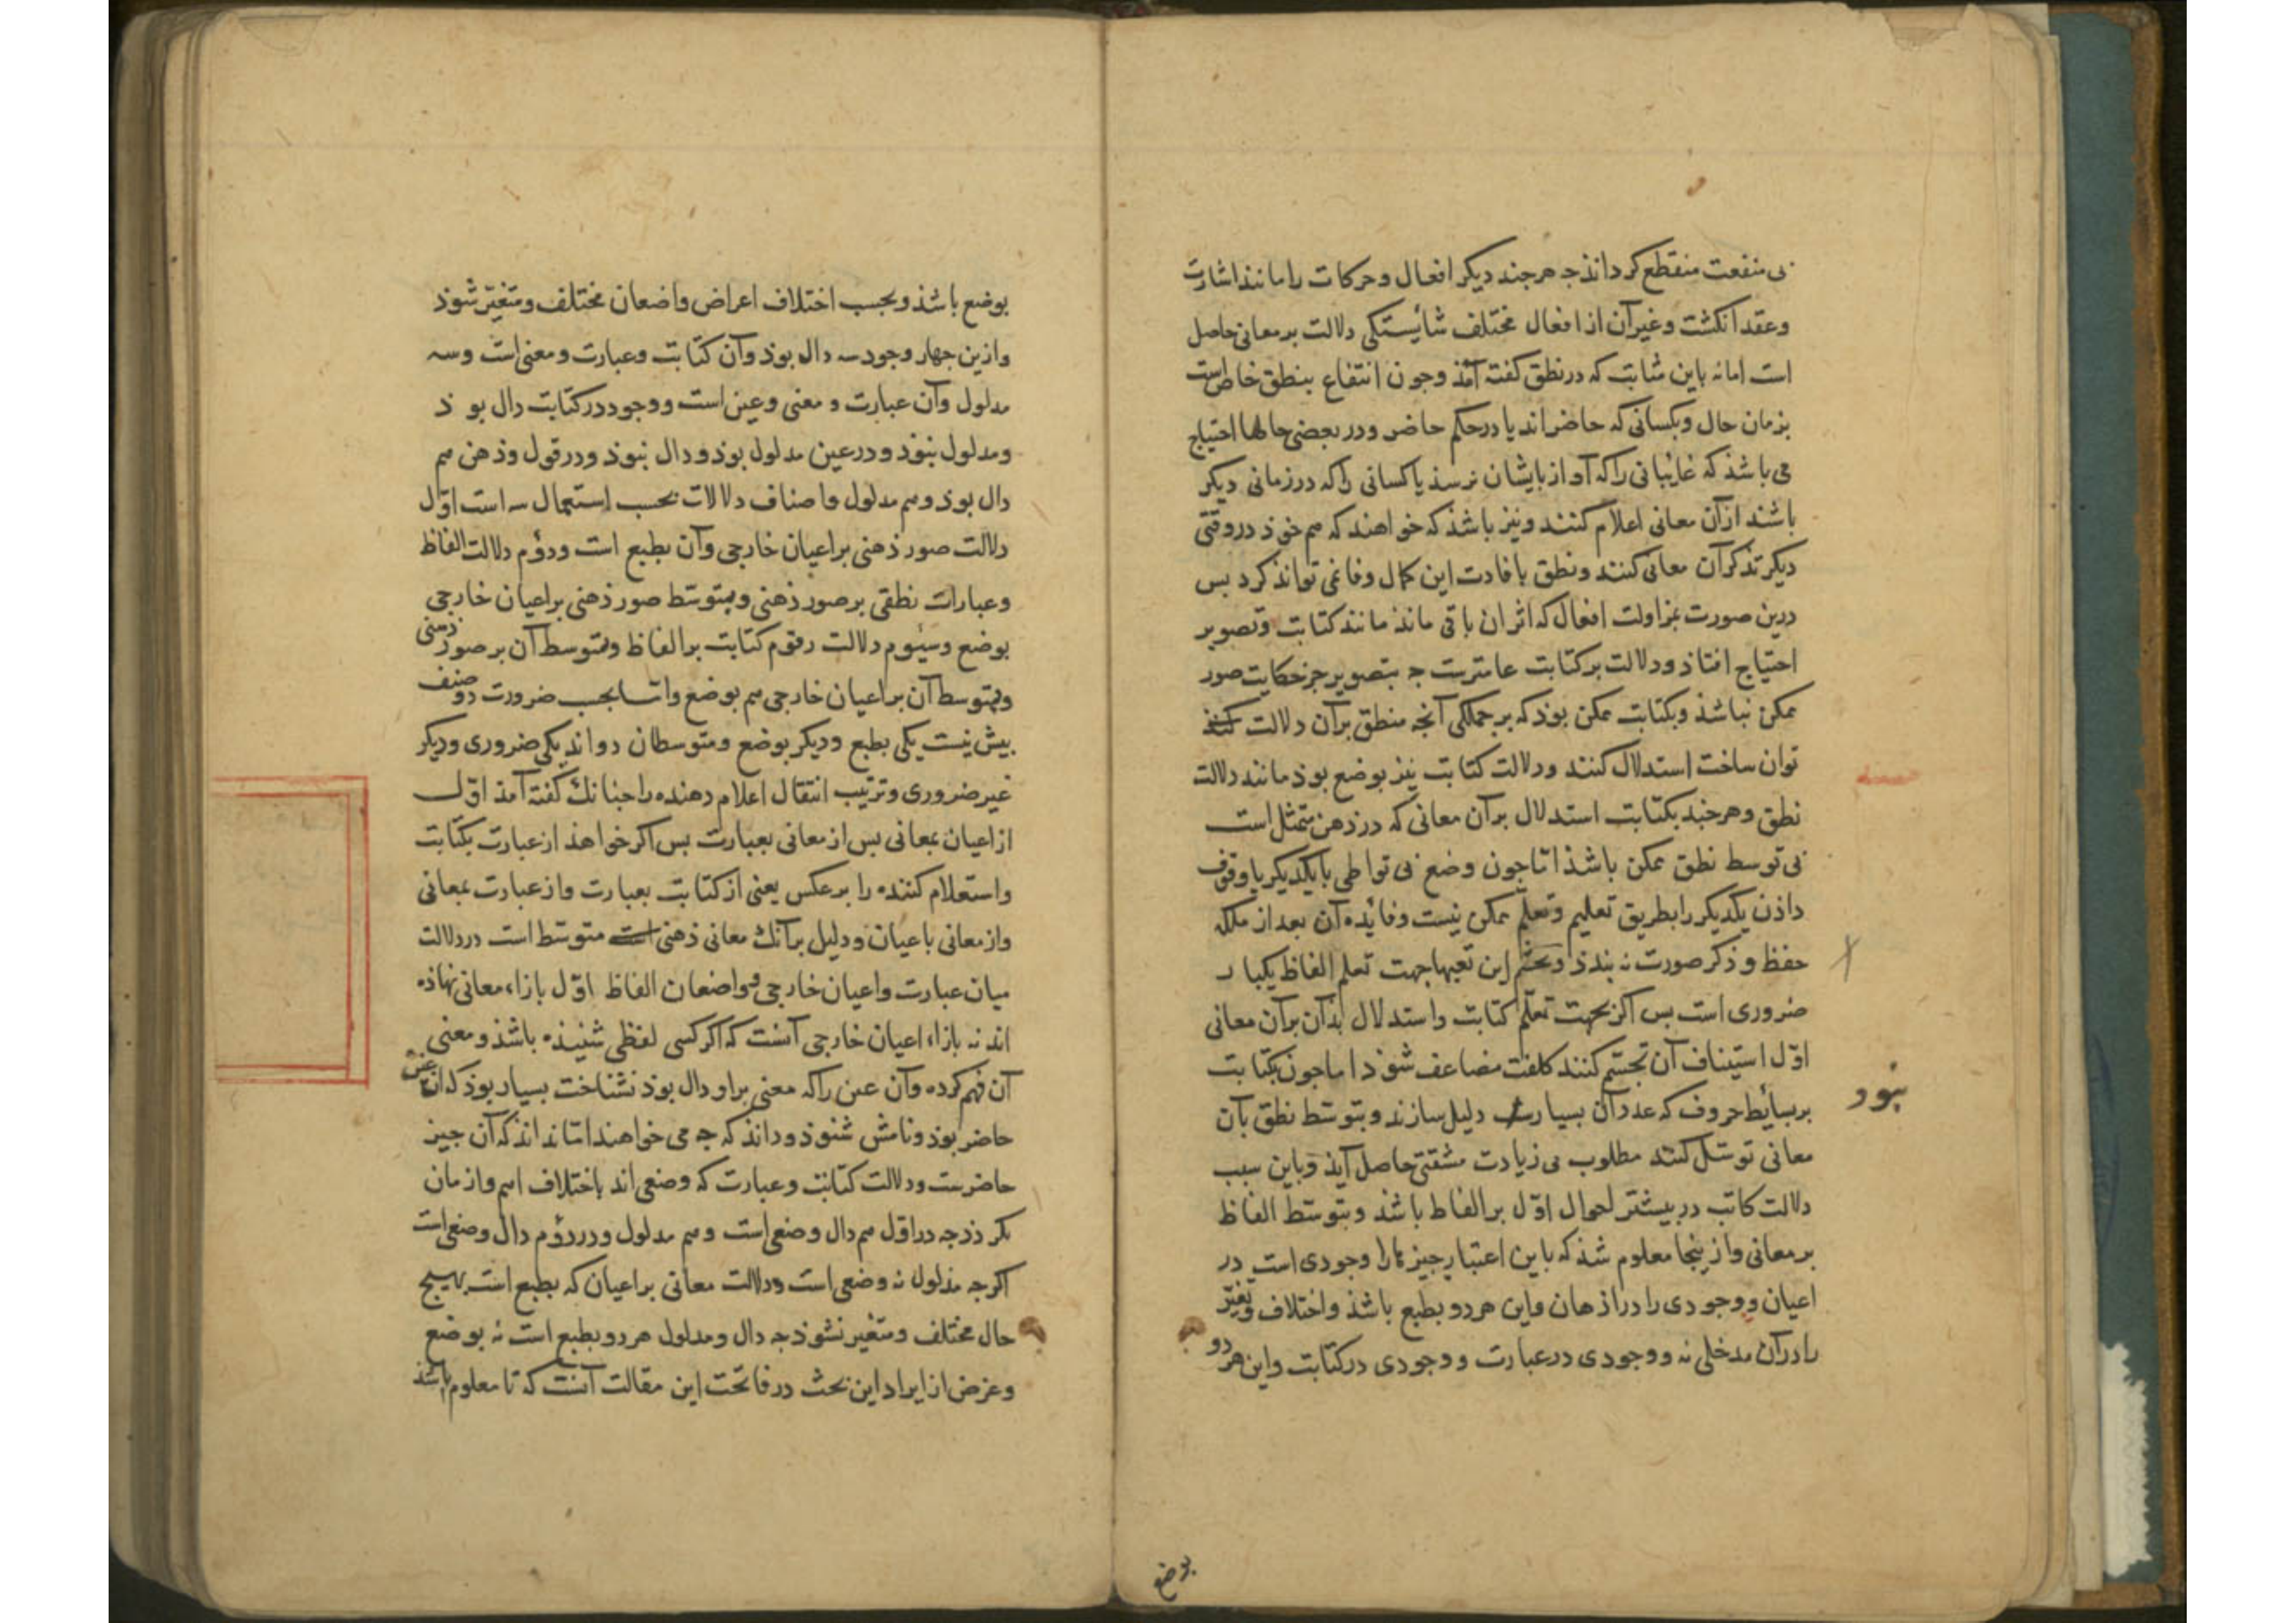 بی منفعت منقطع کرداند جه هرجند دیکر افعال و حرکات را مانند اشارت
وعقد انکشت وغیر آن از افعال مختلف شائیستکی دلالت بر معانی حاصل
است اما نه باین مثابت که در نطق کفته آمذ وجون انتفاع بنطق خاص است
بزمان حال وبکسانی که حاضراند یا درحکم حاضر ودر بعضی حالها احتیاج
می باشذ که غایبانی راکه آواز بایشان نرسذ یا کسانی راکه در زمانی دیکر
باشند از آن معانی اعلام کنند ونیز باشذ که خواهند که هم خوذ در وقتی
دیکر تذکر آن معانی کنند ونطق بافادت این کمال وفا نمی تواند کرد بس
درین صورت بمزاولت افعال که اثر ان باقی ماند مانند کتابت وتصویر
احتیاج افتاذ ودلالت بر کتابت عامترست جه بتصویر جز حکایت صور
ممکن نباشذ وبکتابت ممکن بوذ که بر جملکی آنجه منطق برآن دلالت کنند
توان ساخت استدلال کنند ودلالت کتابت نیز بوضع بوذ مانند دلالت
نطق وهرجند بکتابت استدلال برآن معانی که درذهن متمثل است
بی توسط نطق ممکن باشذ اما جون وضع بی تواطی با یکدیکر یا وقوف
داذن یکدیکر را بطریق تعلیم وتعلم ممکن نیست وفائده آن بعد از ملکه
حفظ و ذکر صورت نه بندذ وتجشم این تعبها جهت تعلم الفاظ یکبار
ضروری است بس اکر بجهت تعلم کتابت واستدلال بذآن برآن معانی
اول استیناف آن تجشم کنند کلفت مضاعف شوذ اما جون بکتابت
بربسائط حروف که عدد آن بسیار دلیل سازند وبتوسط نطق بآن
نبود
معانی توسل کنند مطلوب بی زیادت مشقتی حاصل آیذ وباین سبب
دلالت کاتب در بیشتر احوال اول بر الفاظ باشذ وبتوسط الفاظ
بر معانی وازینجا معلوم شذ که باین اعتبار جیزها را وجودی است در
اعیان ووجودی را در اذهان واین هر دو بطبع باشذ واختلاف وتغیر
را درآن مدخلی نه ووجودی درعبارت ووجودی درکتابت واین هر دو
بوضع
بوضع باشذ وبحسب اختلاف اعراض واضعان مختلف ومتغیر شوذ
وازین جهار وجود سه دال بوذ وآن کتابت وعبارت ومعنی است وسه
مدلول وآن عبارت و معنی وعین است ووجود در کتابت دال بوذ
ومدلول نبوذ ودر عین مدلول بوذ ودال نبوذ ودر قول وذهن هم
دال بوذ وهم مدلول واصناف دلالات بحسب استعمال سه است اول
دلالت صور ذهنی بر اعیان خارجی وآن بطبع است ودؤم دلالت الفاظ
وعبارات نطقی بر صور ذهنی وبتوسط صور ذهنی بر اعیان خارجی
بوضع وسیؤم دلالت رقوم کتابت بر الفاظ وبتوسط آن بر صور ذهنی
وبتوسط آن بر اعیان خارجی هم بوضع واما بحسب ضرورت دو صنف
بیش نیست یکی بطبع ودیکر بوضع ومتوسطان دواند یکی ضروری ودیکر
غیر ضروری وترتیب انتقال اعلام دهنده را جنانک کفته آمذ اول
از اعیان بمعانی بس از معانی بعبارت بس اکر خواهذ از عبارت بکتابت
واستعلام کننده را برعکس یعنی از کتابت بعبارت واز عبارت بمعانی
واز معانی باعیان ودلیل برآنک معانی ذهنی متوسط است در دلالت
میان عبارت واعیان خارجی وواضعان الفاظ اول بازاء معانی نهاذه
اند نه بازاء اعیان خارجی آنست که اکر کسی لفظی شنیذه باشذ ومعنی
آن فهم کرده وآن عین راکه معنی براو دال بوذ نشناخت بسیار بوذ که آن عین
حاضر بوذ ونامش شنوذ وداند که جه می خواهند اما نداند که آن جیز
حاضرست ودلالت کتابت وعبارت که وضعی اند باختلاف امم وازمان
بکرذذ جه در اول هم دال وضعی است وهم مدلول ودر دؤم دال وضعی است
اکرجه مدلول نه وضعی است ودلالت معانی بر اعیان که بطبع است بهیج
حال مختلف ومتغیر نشوذ جه دال ومدلول هر دو بطبع است نه بوضع
وغرض از ایراد این بحث در فاتحت این مقالت آنست که تا معلوم باشذ